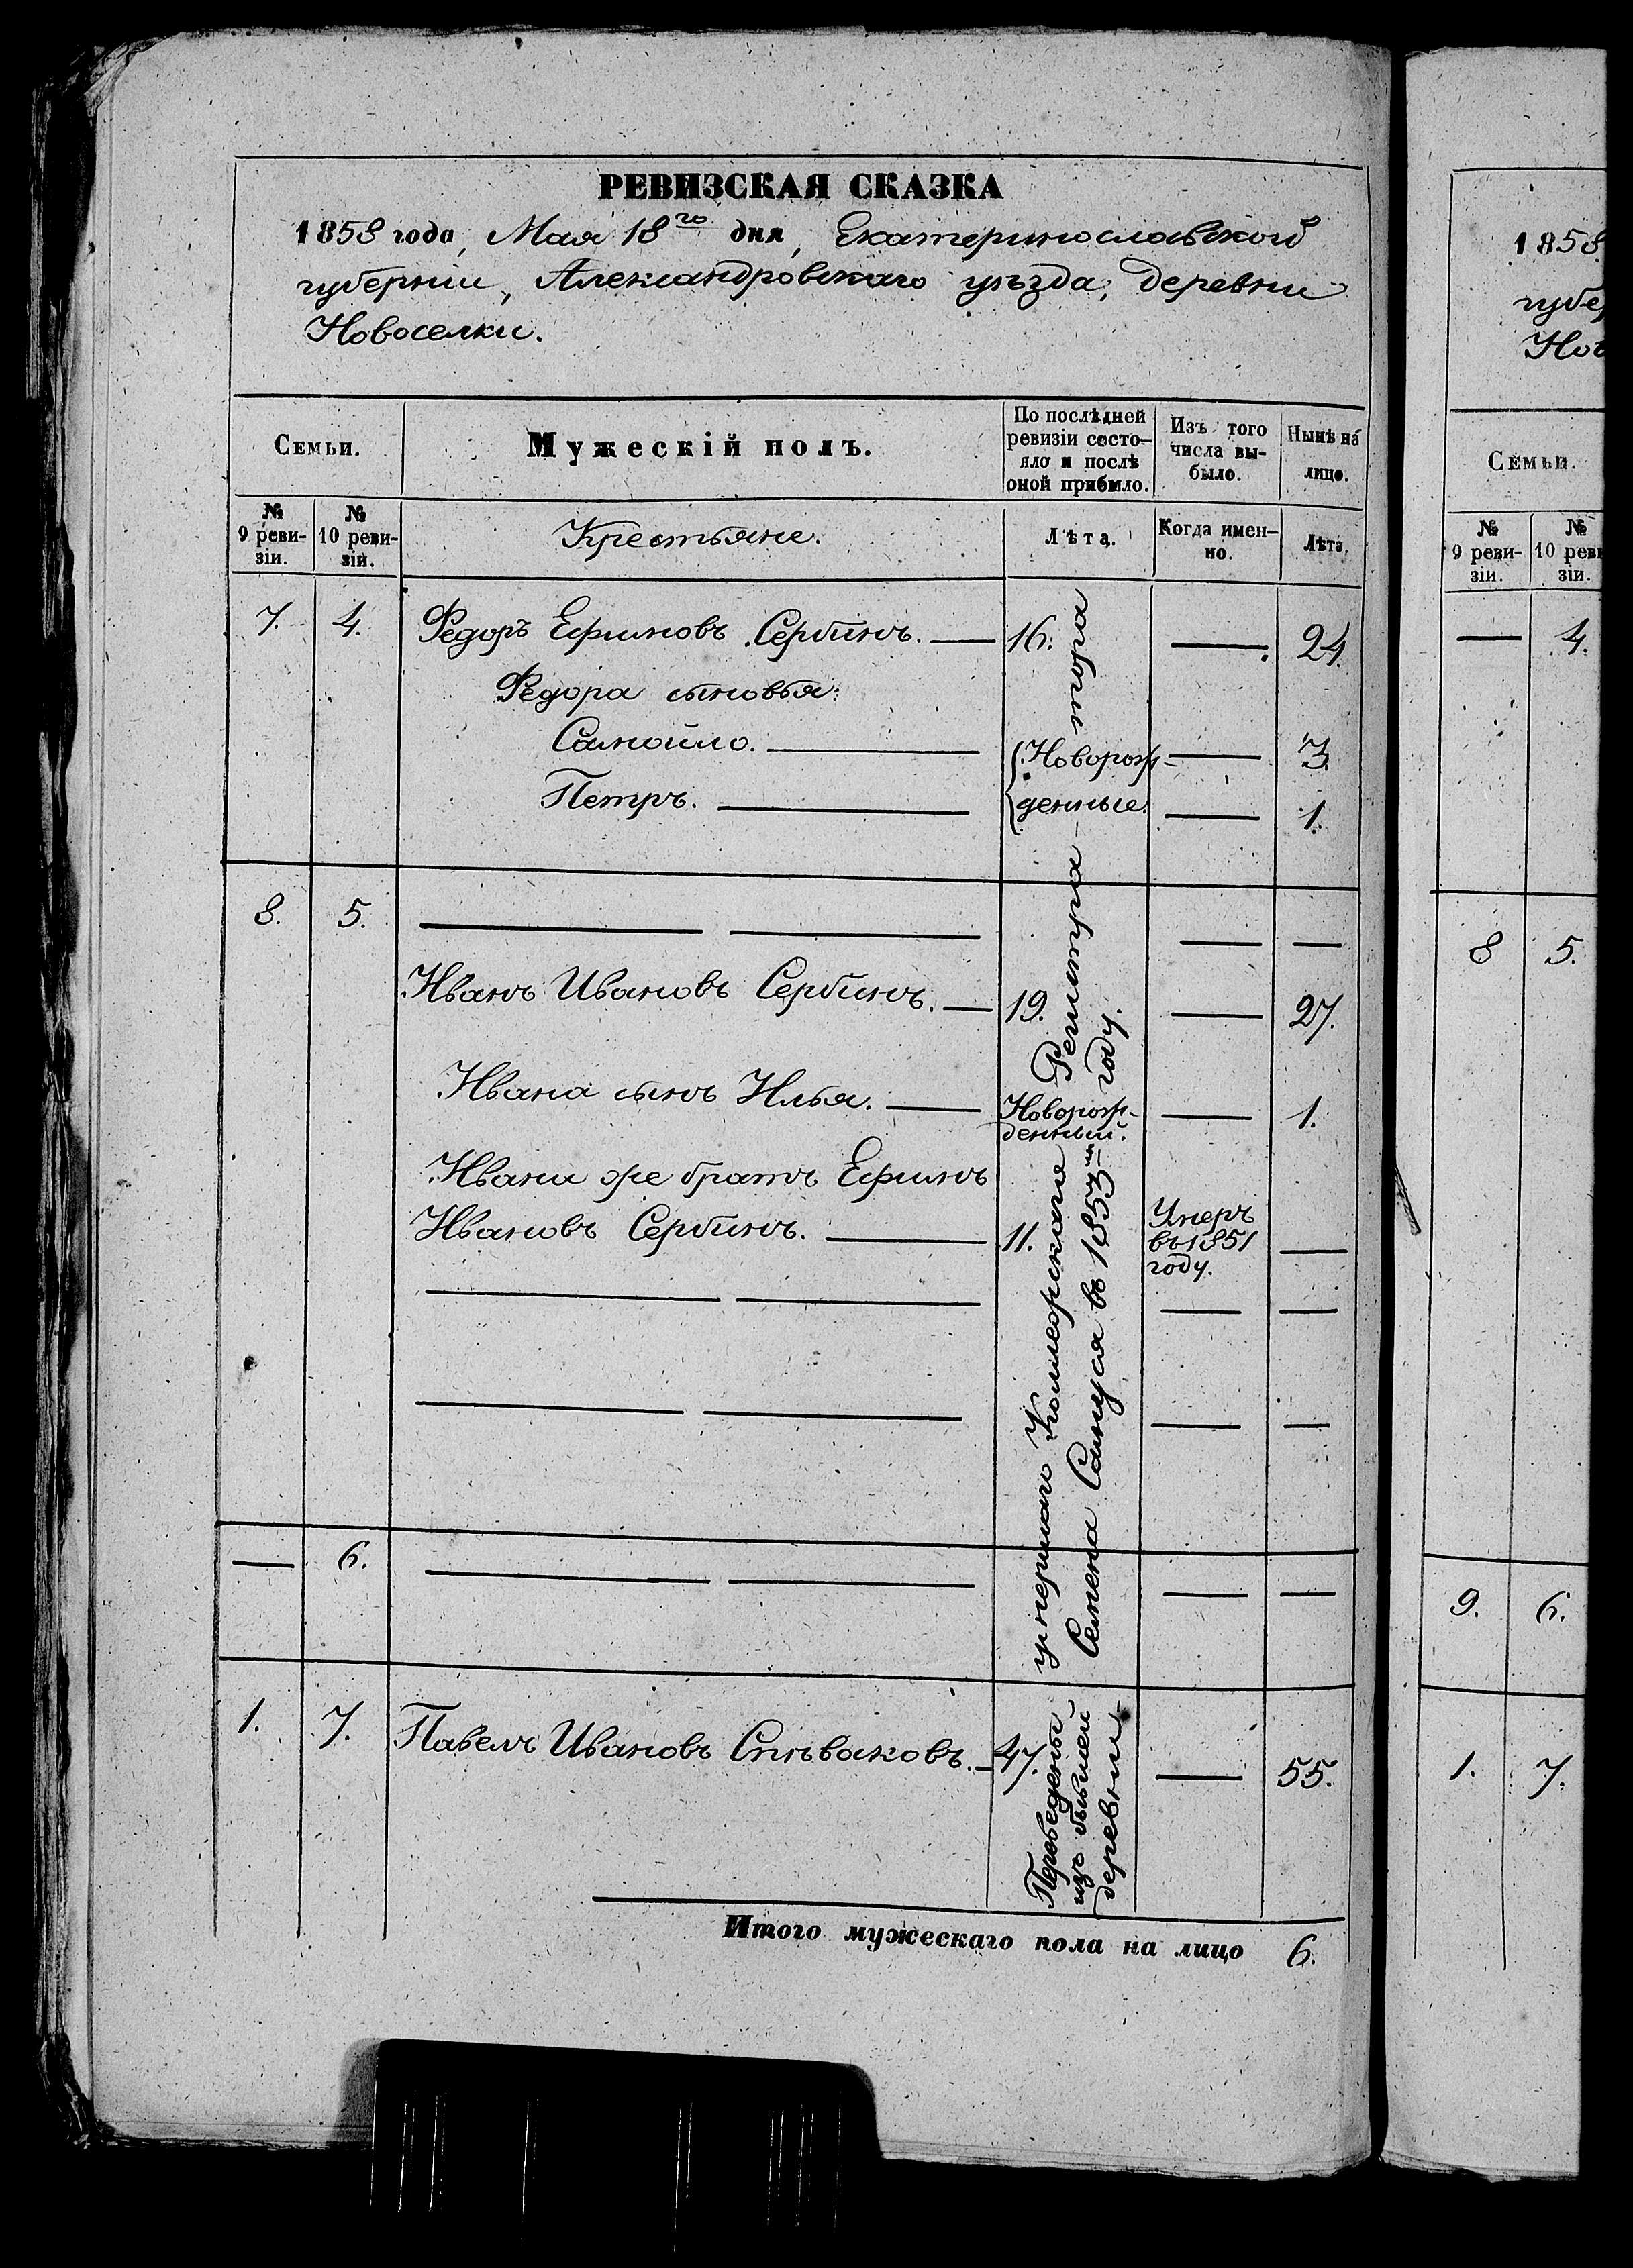 РЕВИЗСКАЯ СКАЗКА
1858 года, Мая 18го дня, Екатеринославской
губерніи, Александровскаго уѣзда, деревни
Новоселки.
Семьи.
Мужескій полъ.
По послѣдней
ревизіи состо-
яло и послѣ
оной прибыло.
Изъ того
числа вы-
было.
Нынѣ на
лицо.
№
9 реви-
зіи.
№
10 реви-
зіи.
Крестьяне.
Лѣта.
Когда имен-
но.
Лѣта.
7. 4. Федоръ Ефимовъ Сербинъ. — 16. — 24.
Федора сыновья:
Самойло. — Новорож- — 3.
Петръ. — денные. — 1.
8. 5. — — — —
Иванъ Ивановъ Сербинъ. — 19. — 27.
Ивана сынъ Илья. — Новорож-
денный. — 1.
Ивана же братъ Ефимъ
Ивановъ Сербинъ. — 11. Умеръ
въ 1851
году. —
— — — —
— — — —
— 6. — — — —
1. 7. Павелъ Ивановъ Спѣваковъ. — 47. — 55.
Переведены
изъ бывшей
деревни
умершаго Коллежскаго Регистра-тора
Семена Сануся въ 1853-мъ году.
Итого мужескаго пола на лицо 6.
1858
губе
Нов
Семьи.
№
9 реви-
зіи.
№
10 реви
зіи.
— 4.
8 5.
9. 6.
1. 7.